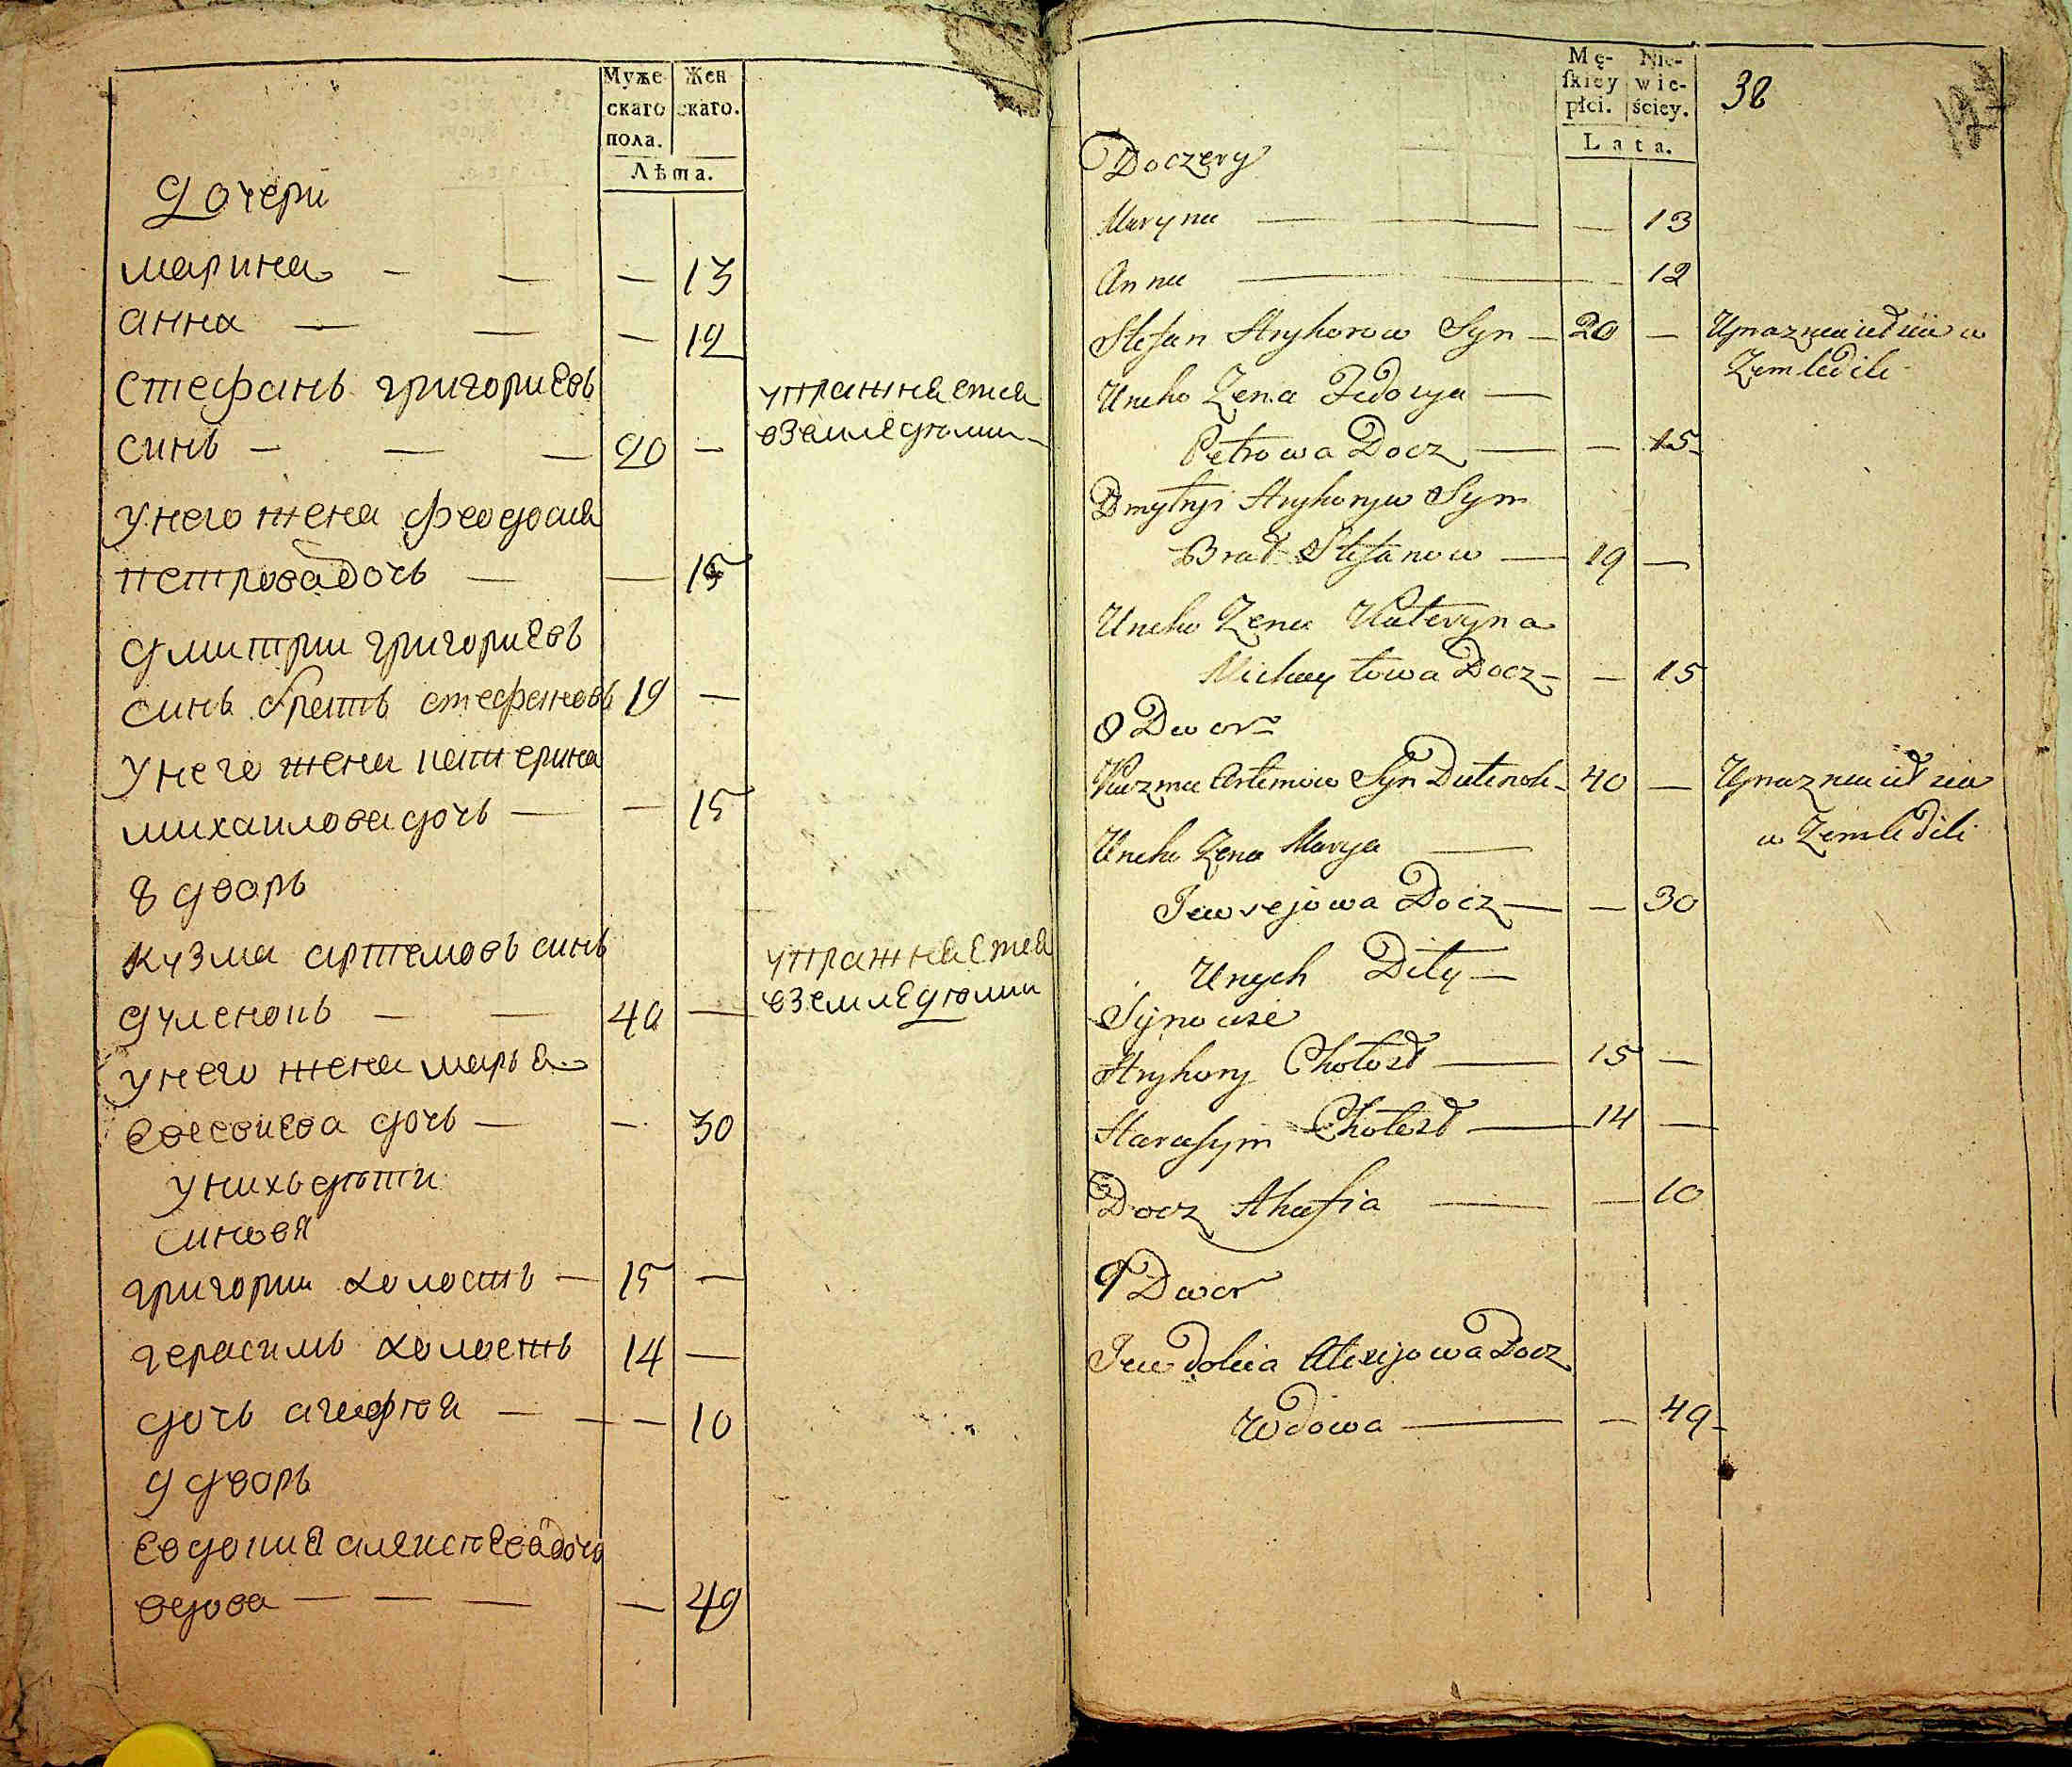 Муже
скаго
пола.
Жен
скаго.
Лѣта.
дочери
марина — — — 13
анна — — — 12
стефанъ григориевъ
синъ — — — 20 —
упражняетса
вземледѣлии
унего жена феодосия
петровадочъ — — 15
дмитрии григориевъ
синъ братъ стефановъ 19 —
унего жена катерина
михаиловадочъ — — 15
8 дворъ
кузма артемовъ синъ
дуленокъ — — 40 —
упражняетса
вземледѣлии
унего жена марья
евсевиева дочъ — — 30
унихъдѣти
синовя
григории холостъ — 15 —
герасимъ холостъ 14 —
дочъ агафия — — — 10
9 дворъ
евдокия алексѣевадочъ
вдова — — — — 49
Mę-
skiey
płci.
Nie-
wie-
ściey.
Lata.
38
Doczery
Maryna — — 13
Anna — — 12
Stefan Hryhorow Syn — 20 —
Uneho Zena Fedosya —
Petrowa Docz — — 15
Dmytryi Hryhoryw Syn
Brat Stefanow — 19 —
Uneho Zena Kateryna
Michayłowa Docz — — 15
8 Dwor
Kuzma Artemow Syn Dulenok — 40 —
w Zemledili
Uneho Zena Marya —
Jewsejowa Docz — — 30
Unych Dity —
Synowie
Hryhory Chołost — 15 —
Harasym Chołost — 14 —
Docz Ahafia — — 10
9 Dwor
Jewdokia Alexijowa Docz
Wdowa — — 49